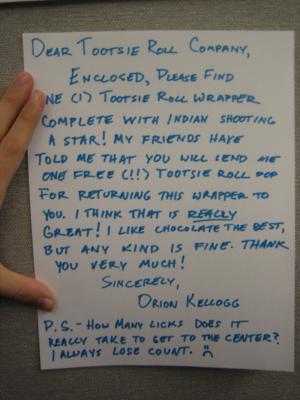 DEAR TOOTSIE ROLL COMPANY,
ENCLOSED, PLEASE FIND
NE (1) TOOTSIE ROLL WRAPPER
COMPLETE WITH INDIAN SHOOTING
A STAR! MY FRIENDS HAVE
TOLD ME THAT YOU WILL SEND ME
ONE FREE (!!) TOOTSIE ROLL POP
FOR RETURNING THIS WRAPPER TO
YOU. I THINK THAT IS REALLY
GREAT! I LIKE CHOCOLATE THE BEST,
BUT ANY KIND IS FINE. THANK
YOU VERY MUCH!
SINCERELY,
ORION KELLOGG
P.S. - HOW MANY LICKS DOES IT
REALLY TAKE TO GET TO THE CENTER?
I ALWAYS LOSE COUNT. :(